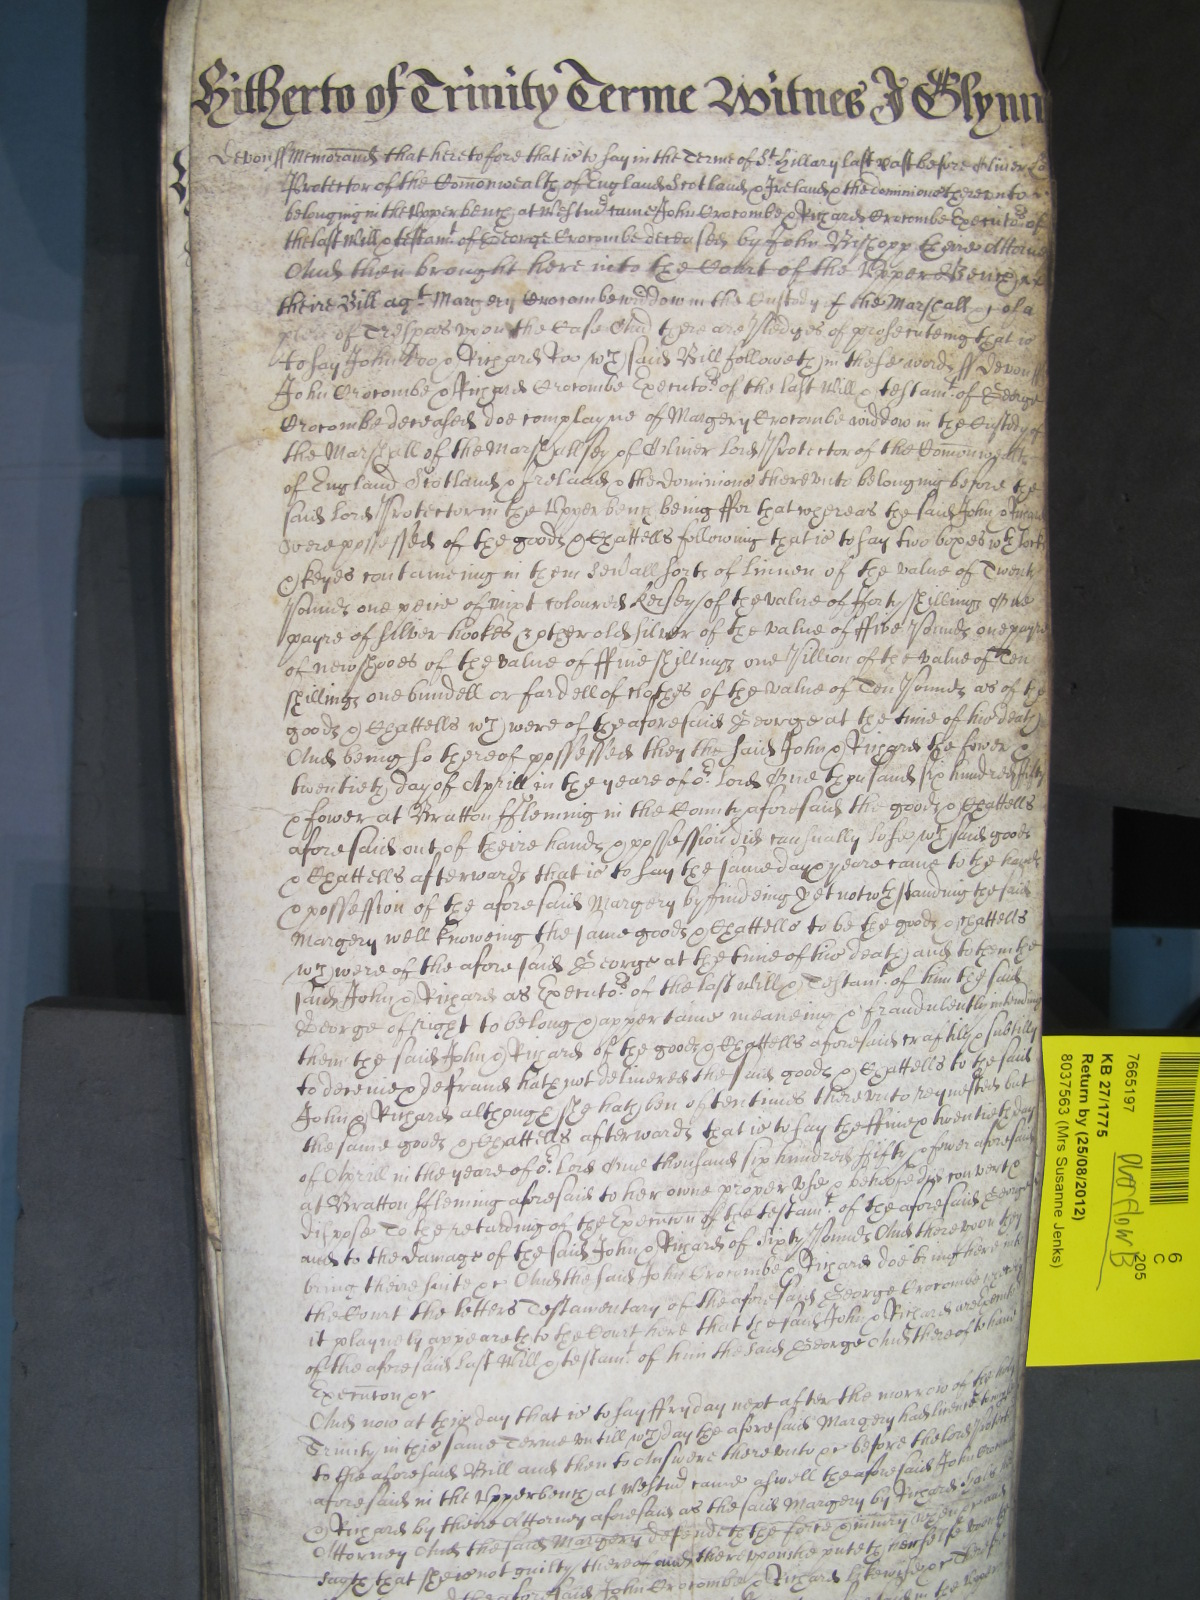 Hitherto of Trinity Terme Witnes J Glynn
Devon ss Memorand that heretofore that is to say in the Terme of St Hillary last past before Oliver Lo
Protector of the Comonwealth of England Scotland & Ireland & the dominions thereunto
belonging in the Upper bench at Westmr came John Crocombe & Richard Crocombe Executors of
the last Will & testamt of George Crocombe deceased by John Bishopp there Attorne
And then brought here into the Court of the Upper Bench
theire Bill agt Margery Crocombe widdow in the Custody of the Marshall of a
plea of Trespas upon the Case And there are Pledges of prosecuteing that is
to say John Doo & Richard Roo wch said Bill followeth in these words ss Devon ss
John Crocombe & Richard Crocombe Executors of the last Will & testamt of George
Crocombe deceased doe complayne of Margery Crocombe widdow in the Custody of
the Marshall of the Marshallsey of Oliver Lord Protector of the Comonwealth
of England Scotland & Ireland & the dominions thereunto belonging before the
said Lord Protector in the Upper bench being ffor that whereas the said John & Richard
were possessed of the goods & Chattells following that is to say two boxes wth lockes
& keyes conteineing in them severall sorts of linnen of the value of Twenty
Pounds one peice of mixt coloured Kersey of the value of fforty shillings One
payre of silver hookes & other old silver of the value of ffive Pounds one payre
of new shooes of the value of ffive shillings one Pillion of the value of Ten
shillings one bundell or fardell of clothes of the value of Ten Pounds as of the
goods & Chattells wch were of the aforesaid George at the time of his death
And being so thereof possessed they the said John & Richard the fower &
twentieth day of Aprill in the yeare of or Lord One thousand six hundred fifty
& fower at Bratton ffleming in the County aforesaid the goods & Chattells
aforesaid out of theire hands & possession did casually lose wch said goods
& Chattells afterwards that is to say the same day & yeare came to the hands
& possession of the aforesaid Margery by findeing Yet notwthstanding the said
Margery well knoweing the same goods & Chattells to be the goods & Chattells
wch were of the aforesaid George at the time of his death and to them the
said John & Richard as Executors of the last Will & Testamt of him the said
George of right to belong & appertaine meaneing & fraudulently intending
them the said John & Richard of the goods & Chattells aforesaid craftily & subtilly
to deceive & defraud hath not delivered the said goods & Chattells to the said
John & Richard although she hath ben oftentimes thereunto requested but
the same goods & Chattells afterwards that is to say the ffive & twentieth day
of Aprill in the yeare of or Lord One thousand six hundred fifty & fower aforesaid
at Bratton fflemeing aforesaid to her owne proper use & behoofe did convert &
dispose To the retarding of the Execution of the testamt of the aforesaid George
and to the damage of the said John & Richard of Sixty Pounds And thereupon they
bring theire suite &c And the said John Crocombe & Richard doe bring here into
the Court the letters Testamentary of the aforesaid George Crocombe
it playnely appeareth to the Court here that the said John & Richard are Executors
of the aforesaid last Will & testamt of him the said George And thereof to have
Execution &c
And now at this day that is to say ffryday next after the morrow of the holy
Trinity in this same Terme untill wch day the aforesaid Margery had licence to
to the aforesaid Bill and then to Answere thereunto &c before the lord Protector
aforesaid in the Upper bench at Westmr came aswell the aforesaid John Crocombe
& Richard by theire Attorney aforesaid as the said Margery by Richard
Attorney And the said Margery defendeth the force & iniury when &c and
sayth that she is not guilty thereof and thereupon she puteth herselfe upon the
the aforesaid John Crocombe & Richard likewise &c Therefore
7665197
KB 27/1775
Return by (25/08/2012)
8037563 (Mrs Susanne Jenks)
Overflow B
6
C
205